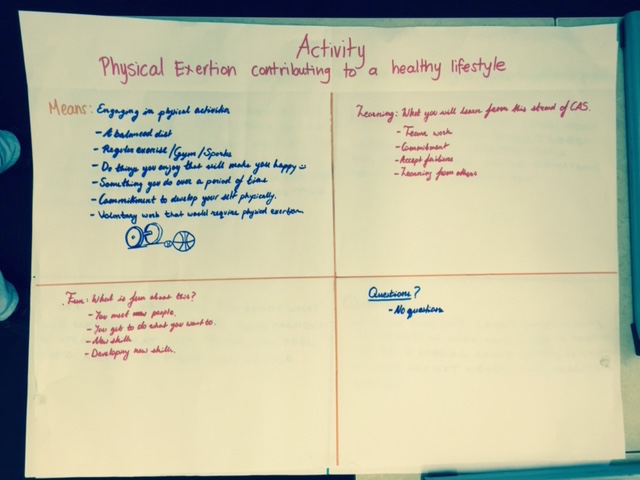 Activity
Physical Exertion contributing to a healthy lifestyle
Means: Engaging in physical activities
- A balanced diet
- Regular exercise/Gym/Sports
- Do things you enjoy that will make you happy :)
- Something you do over a period of time
- Commitment to develop your self physically.
- Voluntary work that would require physical exertion
Learning: What you will learn from this strand of CAS.
- Team work
- Commitment
- Accept failures
- Learning from others
Fun: What is fun about this?
- You meet new people.
- You get to do what you want to.
- New skills
- Developing new skills.
Questions?
- No questions